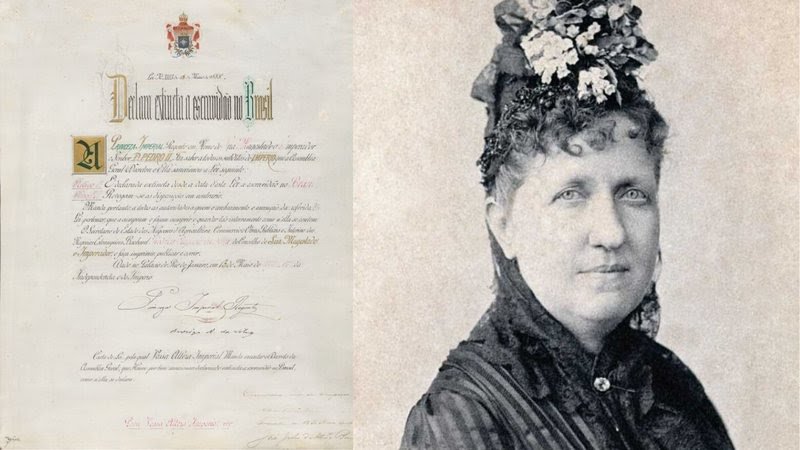 Declara extincta a escravidão no Brasil
A Princeza Imperial Regente em Nome de Sua Magestade o Imperador
o Senhor D. Pedro II, Faz saber a todos os subditos do IMPERIO que a Assembléa
Geral Decretou e Ella sanccionou a Lei seguinte:
É declarada extincta desde a data desta Lei a escravidão no Brazil
Revogam-se as disposições em contrario.
Manda portanto a todas as autoridades a quem o conhecimento e execução da referida
Lei pertencer, que a cumpram e façam cumprir e guardar tão inteiramente como n'ella se contem.
O Secretario de Estado dos Negocios d'Agricultura, Commercio e Obras Publicas e Interino dos
Negocios Estrangeiros, Bacharel do Conselho de Sua Magestade
o Imperador, o faça imprimir, publicar e correr.
Dada no Palacio do Rio de Janeiro, em 13 de Maio de da
Independencia e do Imperio.
Princeza Imperial Regente
Carta de Lei, pela qual Vossa Alteza Imperial Manda executar o Decreto da
Assembléa Geral, que Houve por bem sanccionar declarando extincta a escravidão no Brazil,
como n'ella se declara.
Para Vossa Alteza Imperial ver